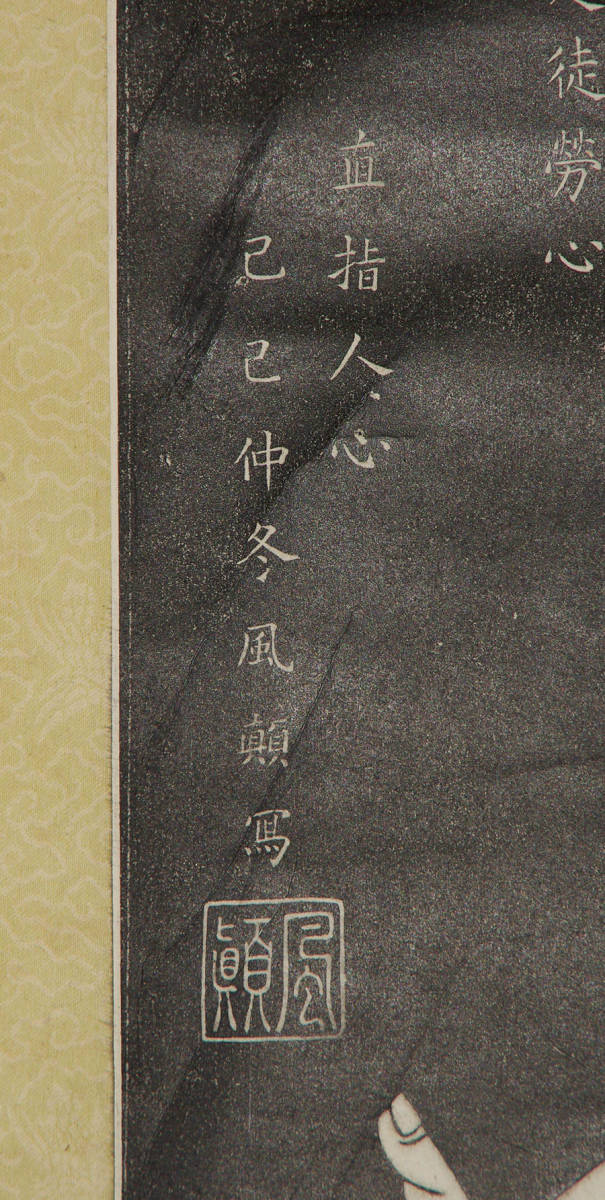 徒勞心
直指人心
己巳仲冬風顛寫
風顛